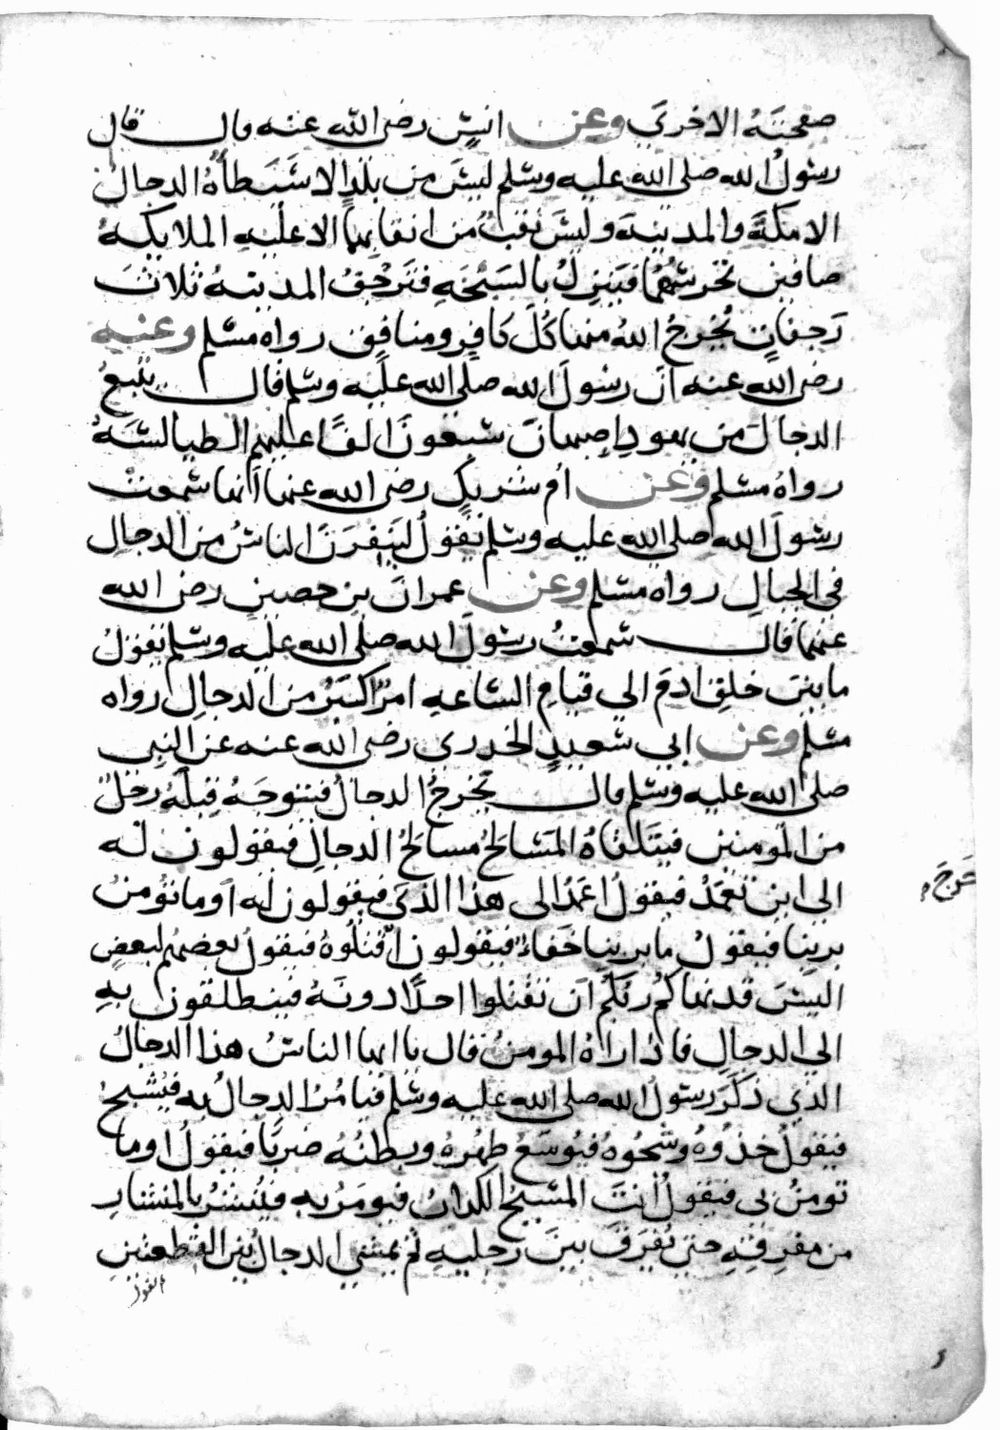 صفحته الاخرى وعن انسٍ رضى الله عنه قال قال
رسُولُ الله صلى الله عليه وسَلم ليسَ من بلدٍ الا سَيَطأهُ الدجالُ
الا مكةَ والمدينةَ وليسَ نقبٌ من انقابهما الا عليهِ الملايكةُ
صافين تحرسُهُما فينزلُ بالسَبْخَةِ فترجُفُ المدينةُ ثلاثَ
رَجفاتٍ يُخْرِجُ اللهُ منها كُلَ كافِرٍ ومنافقٍ رواه مسْلم وعنه
رضى الله عنه ان رسُولَ الله صلى الله عليه وسَلم قال يتبعُ
الدجالَ من يهودِ اصبهانَ سَبعونَ الفًا عليهم الطيالسَةُ
رواهُ مسْلم وعن ام شريكٍ رضى الله عنها انها سمعت
رسُولَ الله صلى الله عليه وسَلم يقولُ ليَنفِرَنَّ الناسُ من الدجالِ
فى الجبالِ رواه مسْلم وعن عمرانَ بن حصينٍ رضى الله
عنهما قال سَمعتُ رسُولَ الله صلى الله عليه وسَلم يقولُ
ما بينَ خلقِ ادمَ الى قيامِ السَاعهِ امرٌ اكبَرُ من الدجالِ رواه
مسْلم وعن ابى سَعيدٍ الخدرى رضى الله عنه عن النبى
صلى الله عليه وسَلم قال يخرجُ الدجالُ فيتوجَهُ قِبلَهُ رجلٌ
من المومنين فيتلقاهُ المَسَالحُ مسَالحُ الدجالِ فيقولون له
الى اين تعمِدُ فيقولُ اعمِدُ الى هذا الذى فيقولون له اَوما تؤمنُ
بربنا فيقولُ ما بربنا خَفاءٌ فيقولون اقتلُوهُ فيقولُ بعضهُم لبعضٍ
اليسَ قد نهاكم ربُكُم اَن تقتلوا احدًا دونَهُ فينطلقون بهِ
الى الدجالِ فاذا راهُ المومنُ قال يا ايها الناسُ هذا الدجالُ
الذى ذكرَ رسولُ الله صلى الله عليه وسلم فيامُرُ الدجالُ به فيُشَبحُ
فيقولُ خذُوهُ وشُجوهُ فيُوسَعُ ظهرهُ وبطنُهُ ضربًا فيقولُ اوما
تومنُ بى فيقولُ انتَ المسَيحُ الكذابُ فيومَرُ بهِ فيُنشَرُ بالمنشارِ
من مفرقِهِ حتى يُفرَقَ بينَ رجليهِ ثم يمشى الدجالُ بينَ القطعتينِ
خَرجَ